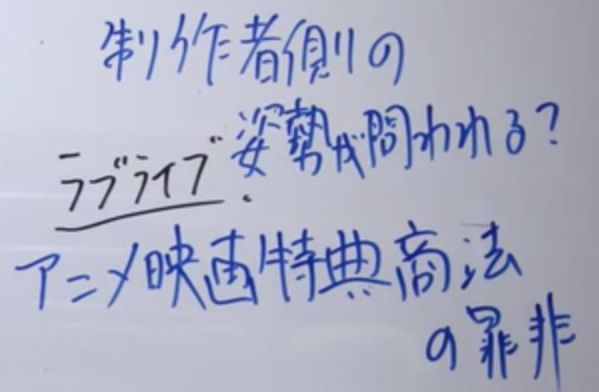 制作者側の
姿勢が問われる?
ラブライブ
アニメ映画特典商法
の罪非